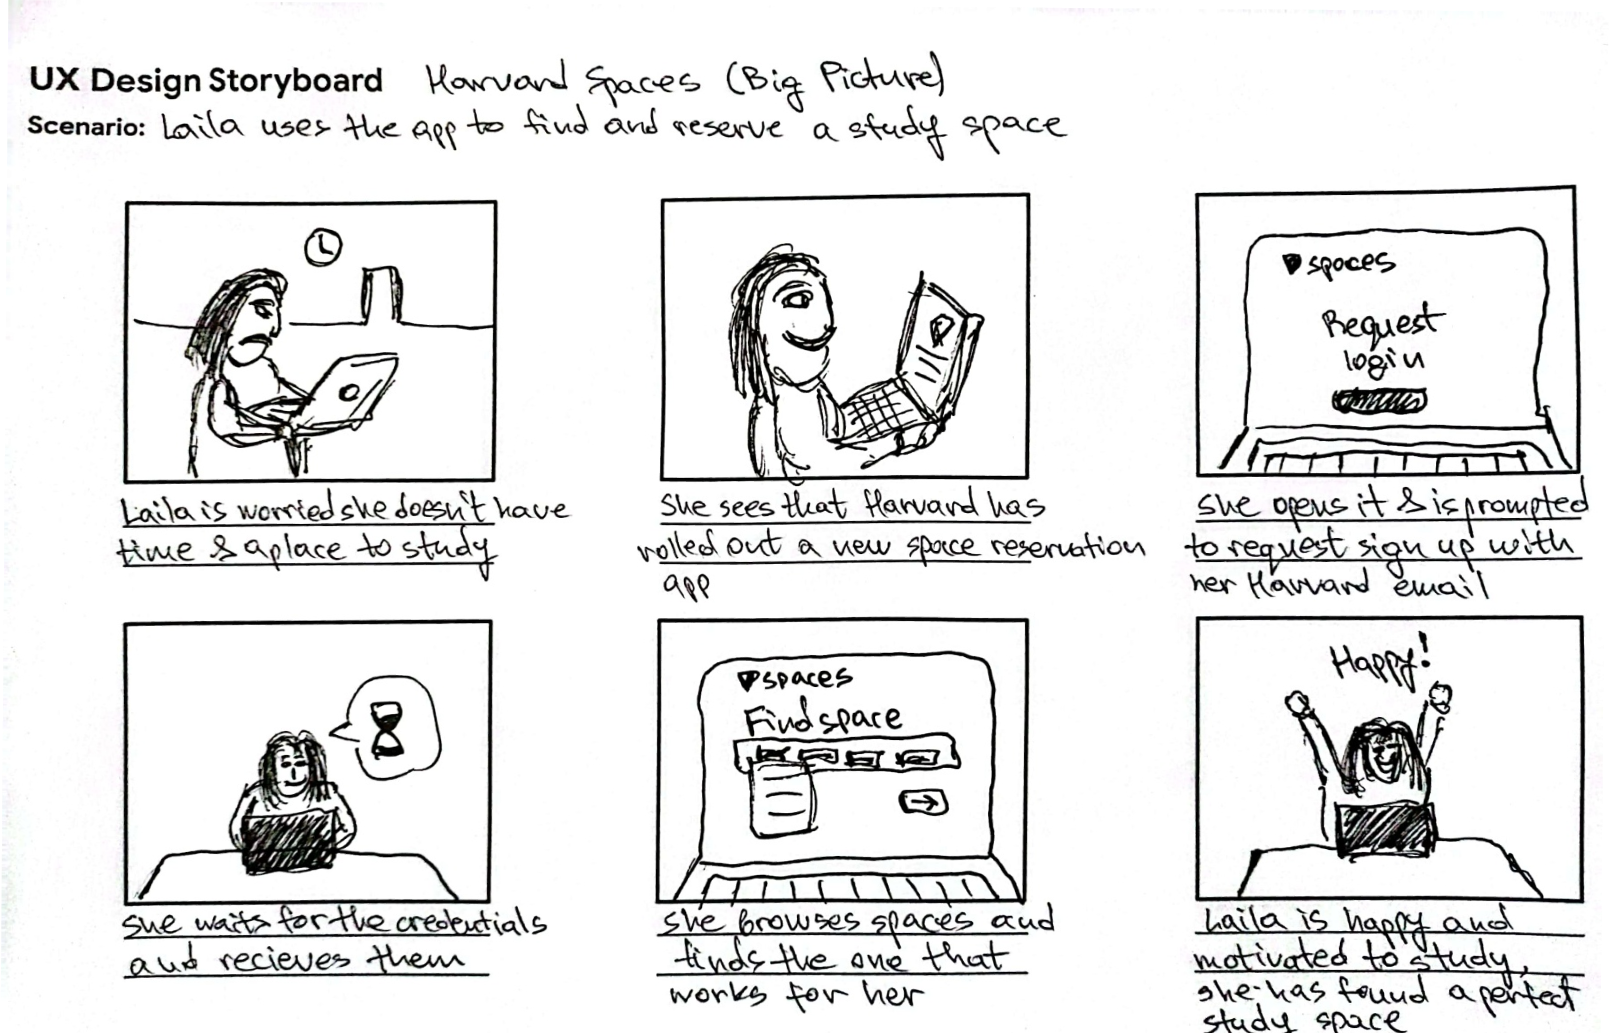 UX Design Storyboard Harvard Spaces (Big Picture)
Scenario: Laila uses the app to find and reserve a study space
spaces
Request
login
Laila is worried she doesn't have
time & a place to study
She sees that Harvard has
rolled out a new space reservation
app
She opens it & is prompted
to request sign up with
her Harvard email
spaces
Find space
Happy!
She waits for the credentials
and recieves them
She browses spaces and
finds the one that
works for her
Laila is happy and
motivated to study,
she has found a perfect
study space